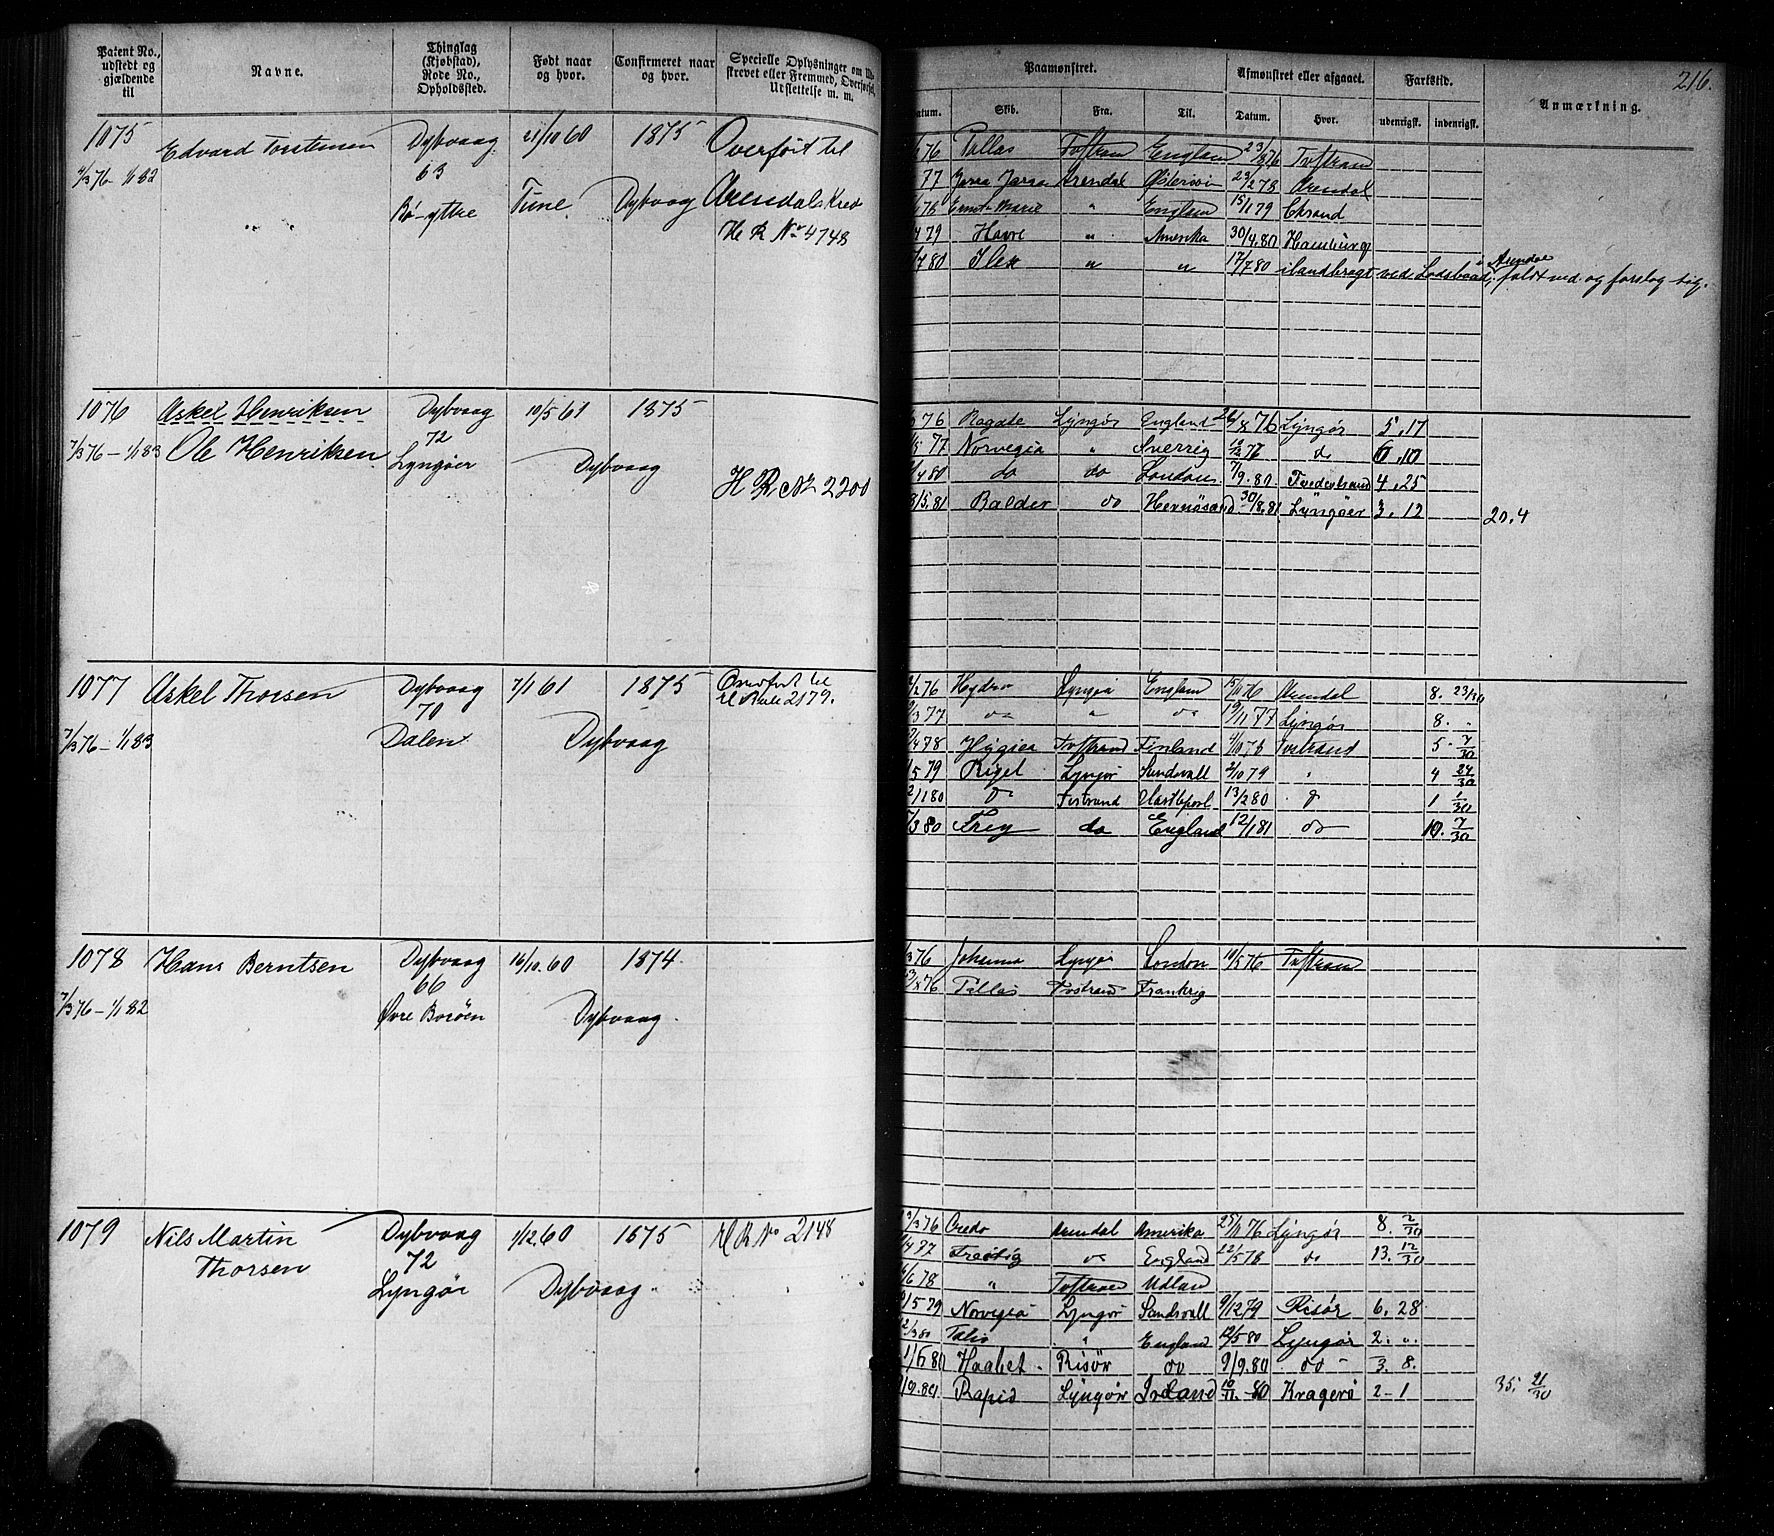 Patent No., udstedt og gjældende til
Navne.
Thinglag (Kjøbstad), Rode No., Opholdssted.
Født naar og hvor.
Confirmeret naar og hvor.
Specielle Oplysninger om
skrevet eller Fremmed, Overførsel,
Udslettelse m. m.
Paamønstret.
Afmønstret eller afgaaet.
Fartstid.
216.
Anmærkning.
Datum. Skib. Fra. Til. Datum. Hvor. udenrigsk. indenrigsk.
1075 Edvard Torstensen Dybvaag 21/10 60 1875 Overført til
4/3 76 - 1/1 82 63
Bø-ytre Tune Dybvaag Arendals Kreds
H R No 4748
76 Pallas England 23/8 76
77 Arendal Østerisør 23/2 78 Arendal
78 " England 15/1 79 Chrsand
79 Havre " Amerika 30/4.80 Hamburg
7 80 Ilex " " 17/7 80 ilandbragt ved Lodsbaad, Arendal faldt ned og forslog sig.
1076 Askel Henriksen Dybvaag 10/5 61 1875
7/3 76 - 1/1 83 Ole Henriksen 72
Lyngøer Dybvaag
H R No 2200
76 Lyngør England 26/8 76 Lyngør 5.17
77 Norvegia " Sverrig 12/12 76 do 6.10
4 80 do do London 7/9.80 4.25
8/5.81 Balder do Hernøsand 30/8.81 Lyngøer 3.12 20.4
1077 Askel Thorsen Dybvaag 7/1 61 1875 Overført til
70 2179.
7/3 76 - 1/1 83 Dalen Dybvaag
2 76 Hydra Lyngør England 15/11 76 Arendal 8. 23/30
3 77 do " do 19/11 77 Lyngør 8. "
4 78 Hygiea Tvestrand Finland 4/10 78 Tvestrand 5. 7/30
5 79 Rigel Lyngør Sundsvall 2/10 79 " 4 24/30
2/1 80 Do Tvestrand 13/2 80 1 1/30
3 80 Frey do England 12/1 81 do 10. 7/30
1078 Hans Berntsen Dybvaag 16/10.60 1874.
66
7/3 76 - 1/1 82 Øvre Borøen Dybvaag.
3 76 Johanna Lyngør London 11/5 76
76 Pallas Tvestrand Frankrig
1079 Nils Martin Dybvaag 1/12.60 1875 H R No 2148
Thorsen 72
Lyngør Dybvaag.
3 76 Credo Arendal Amerika 25/11 76 Lyngør 8. 2/30
4 77 do England 12/5 78 do 13. 12/30
6 78 "
5 79 Norvegia Lyngør Sundsvall 9/12 79 Risør 6. 28
3 80 " England 12/5 80 Lyngør 2. ".
1/6 80 Haabet. Risør do 9/9.80 do 3. 8.
Rapid Lyngør Irland 10/11 - 80 Kragerø 2 - 1 35. 21/30